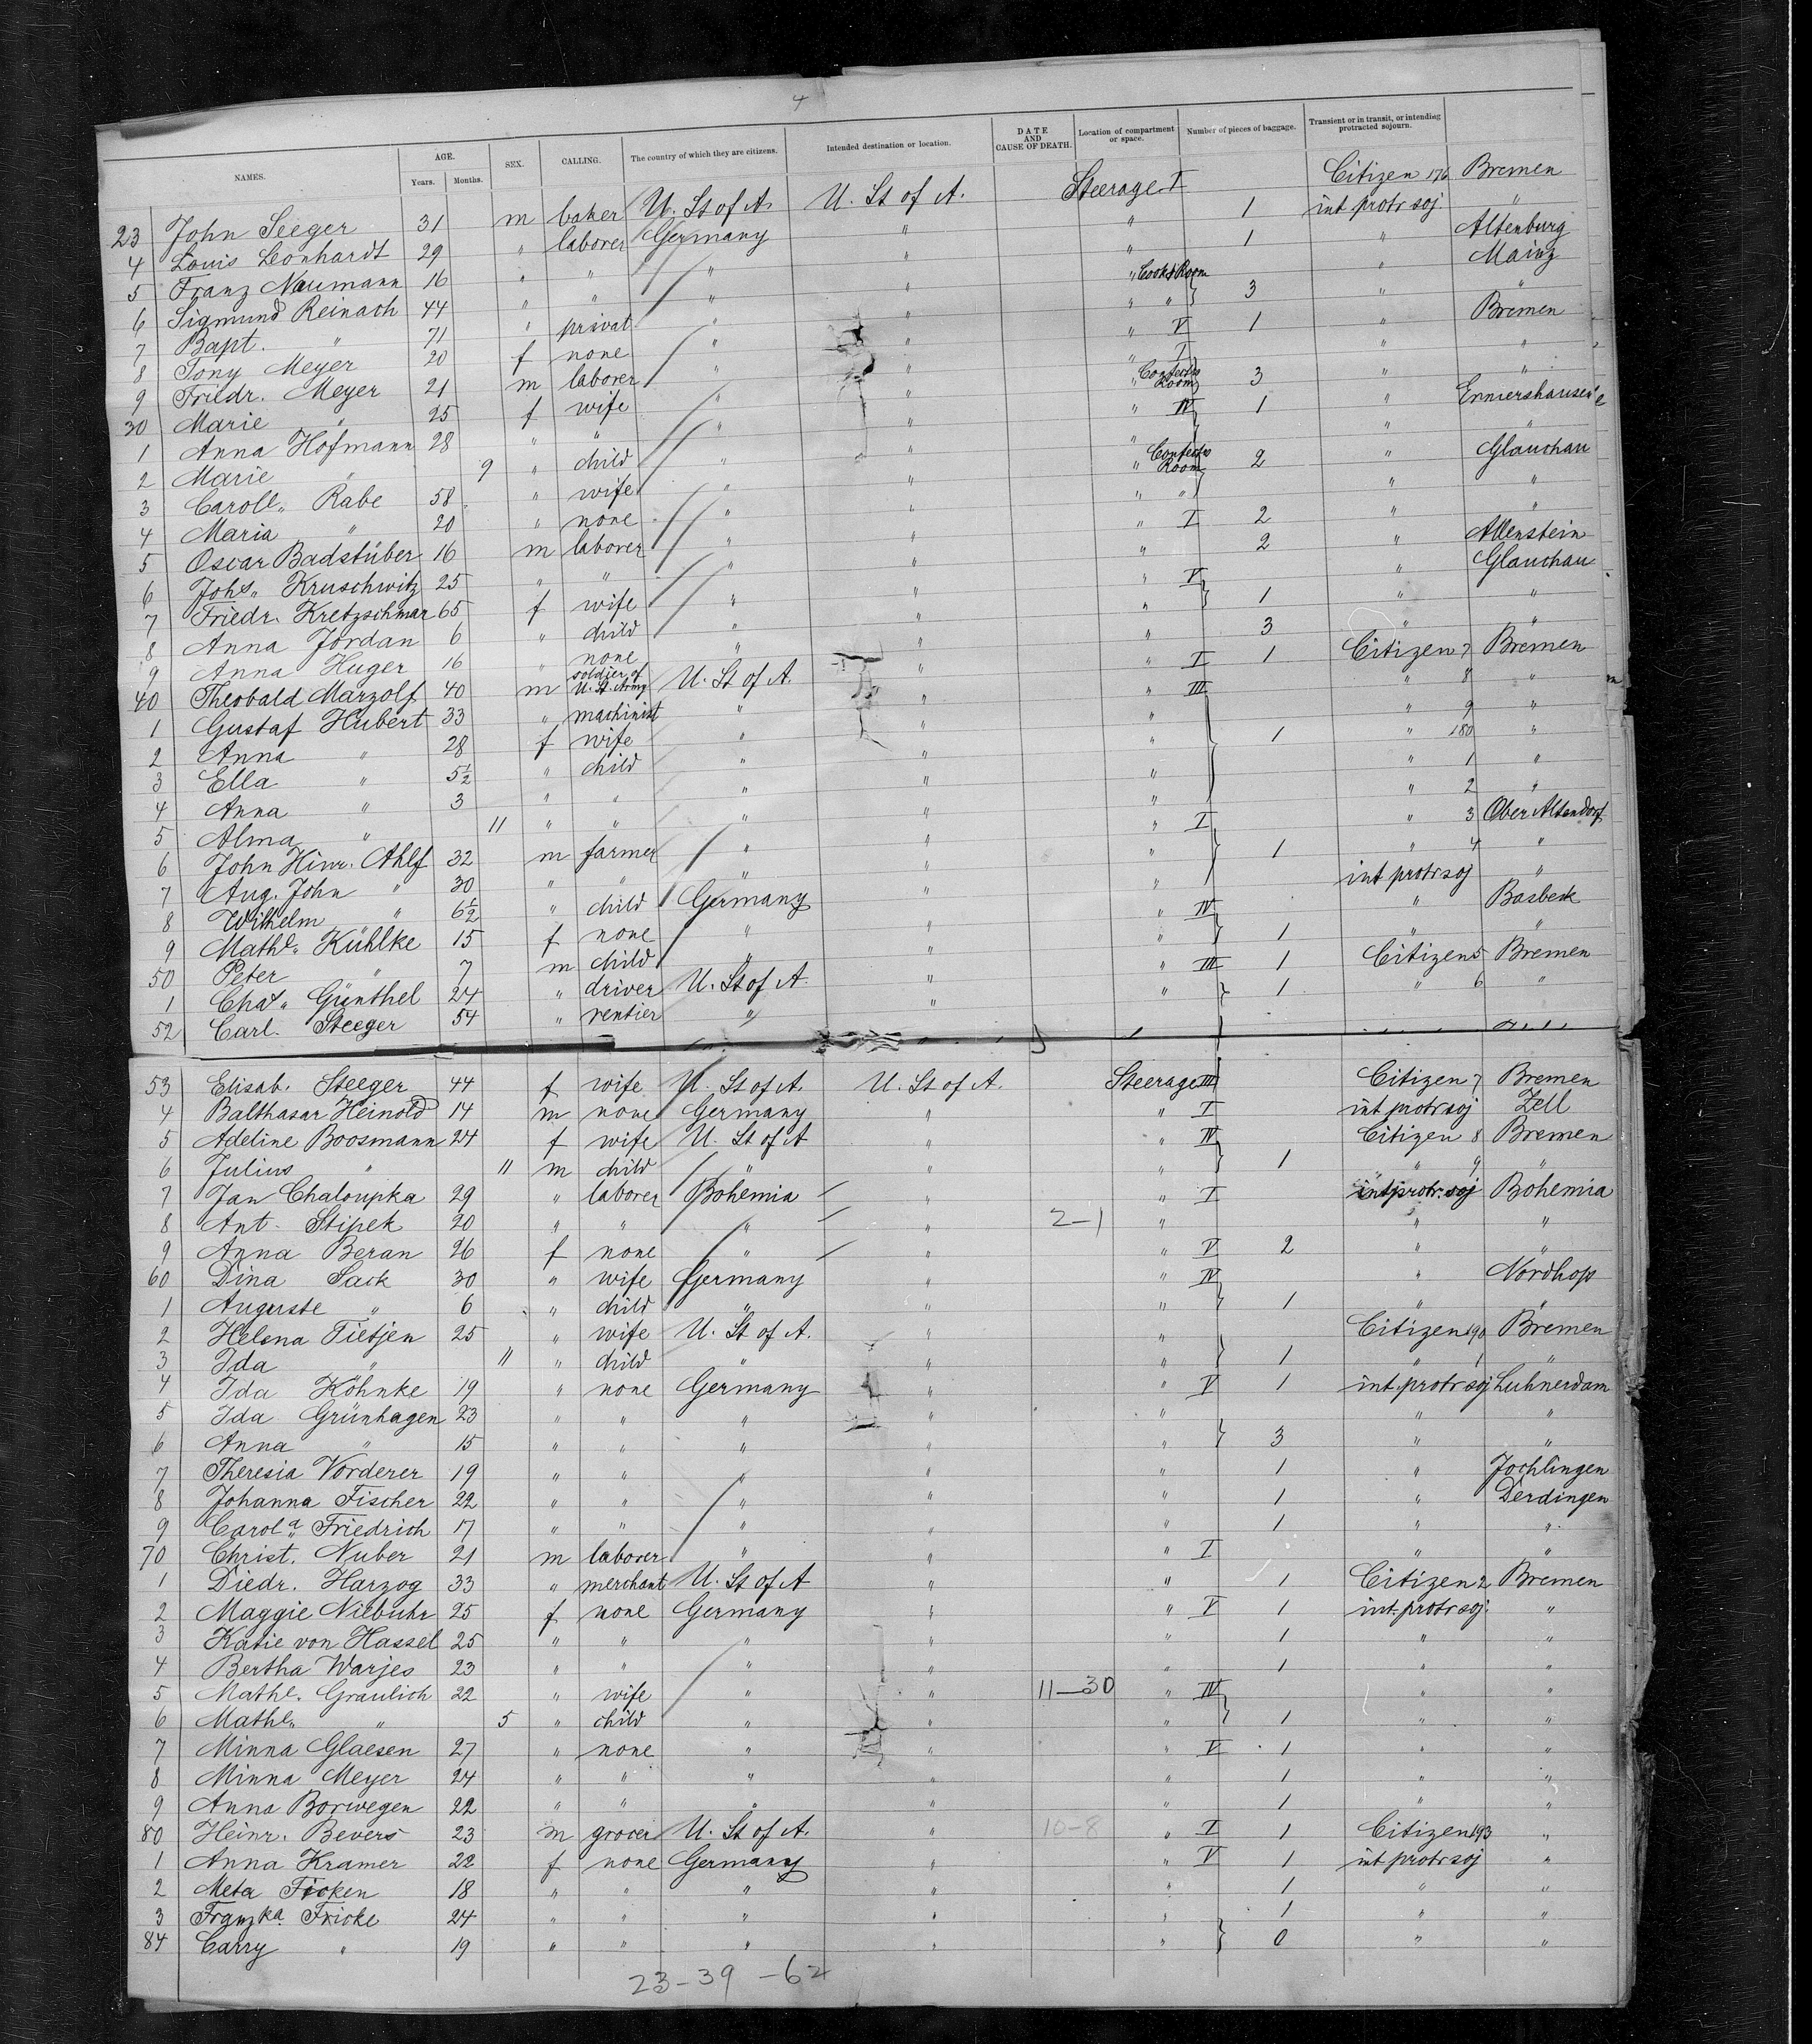 4
NAMES. AGE. Years. Months. SEX. CALLING. The country of which they are citizens. Intended destination or location. DATE AND CAUSE OF DEATH. Location of compartment or space. Number of pieces of baggage. Transient or in transit, or intending protracted sojourn.
23 John Seeger 31 m baker U. St of A. U. St of A. Steerage I Citizen 176 Bremen
4 Louis Leonhardt 29 " laborer Germany " " 1 int protr soj "
5 Franz Naumann 16 " " " " " 1 " Altenburg
6 Sigmund Reinach 44 " " " " " Cooks Room " Mainz
7 Bapt. " 71 " privat " " " " 3 " "
8 Tony Meyer 20 f none " " " V 1 " Bremen
9 Friedr. Meyer 21 m laborer " " " I " "
30 Marie " 25 f wife " " " Room 3 " "
1 Anna Hofmann 28 " " " " " IV 1 "
2 Marie " 9 " child " " " " "
3 Caroll. Rabe 58 " wife " " " Room 2 " Glauchau
4 Maria " 20 " none " " " " " "
5 Oscar Badstüber 16 m laborer " " " I 2 " "
6 Johs. Kruschwitz 25 " " " " " 2 " Allenstein
7 Friedr. Kretzschmar 65 f wife " " " V " Glauchau
8 Anna Jordan 6 " child " " " 1 " "
9 Anna Huger 16 " none " " " 3 " "
40 Theobald Marzolf 40 m soldier of U. St. Army U. St of A. " " I 1 Citizen 7 Bremen
1 Gustaf Hubert 33 " machinist " " " III " 8 "
2 Anna " 28 f wife " " " " 9 "
3 Ella " 5½ " child " " " 1 " 180 "
4 Anna " 3 " " " " " " 1 "
5 Alma " 11 " " " " " " 2 "
6 John Hinr. Ahlf 32 m farmer " " " I " 3 Ober Altendorf
7 Aug. John " 30 " " " " " 1 " 4 "
8 Wilhelm " 6½ " child Germany " " int protr soj "
9 Mathe. Kühlke 15 f none " " " IV " Basbeck
50 Peter " 7 m child " " " 1 " "
1 Chas. Günthel 24 " driver U. St of A. " " III 1 Citizen 5 Bremen
52 Carl. Steeger 54 " rentier " " " 1 " 6 "
53 Elisab. Steeger 44 f wife U. St of A. U. St of A. Steerage III Citizen 7 Bremen
4 Balthasar Heinold 14 m none Germany " " I int protr soj Zell
5 Adeline Boosmann 24 f wife U. St of A " " IV Citizen 8 Bremen
6 Julius " 11 m child " " " 1 " 9 "
7 Jan Chaloupka 29 " laborer Bohemia " " I int protr. soj Bohemia
8 Ant. Stipek 20 " " " " 2-1 " " "
9 Anna Beran 26 f none " " " V 2 " "
60 Dina Sack 30 " wife Germany " " IV " Nordhop
1 Auguste " 6 " child " " " 1 " "
2 Helena Tietjen 25 " wife U. St of A. " " Citizen 190 Bremen
3 Ida " 11 " child " " " 1 " 1 "
4 Ida Köhnke 19 " none Germany " " V 1 int. protr soj Luhnerdam
5 Ida Grünhagen 23 " " " " " " "
6 Anna " 15 " " " " " 3 " "
7 Theresia Vorderer 19 " " " " " 1 " Jochlingen
8 Johanna Fischer 22 " " " " " 1 " Derdingen
9 Carola Friedrich 17 " " " " " 1 " "
70 Christ. Nuber 21 m laborer " " " I " "
1 Diedr. Harzog 33 " merchant U. St of A " " 1 Citizen 2 Bremen
2 Maggie Niebuhr 25 f none Germany " " V 1 int. protr soj. "
3 Katie von Hassel 25 " " " " " 1 " "
4 Bertha Warjes 23 " " " " " 1 " "
5 Mathe. Graulich 22 " wife " " 11-30 " IV " "
6 Mathe. " 5 " child " " " 1 " "
7 Minna Glaesen 27 " none " " " V 1 " "
8 Minna Meyer 24 " " " " " 1 " "
9 Anna Borwegen 22 " " " " " 1 " "
80 Heinr. Bevers 23 m grocer U. St of A. " 10-8 " I 1 Citizen 193 "
1 Anna Kramer 22 f none Germany " " V 1 int protr soj "
2 Meta Ficken 18 " " " " " 1 " "
3 Franzka Fricke 24 " " " " " 1 " "
84 Carry " 19 " " " " " 0 " "
23-39-62